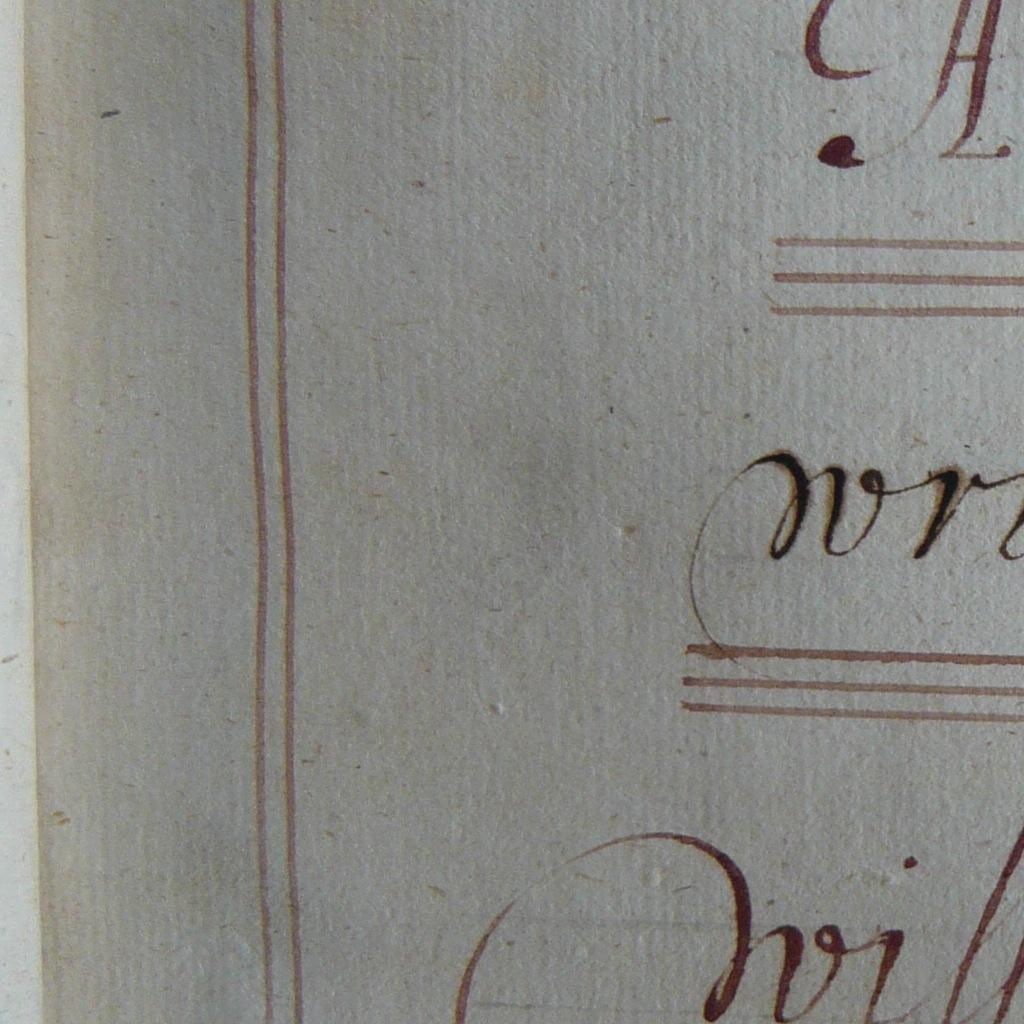 A
wr
wil